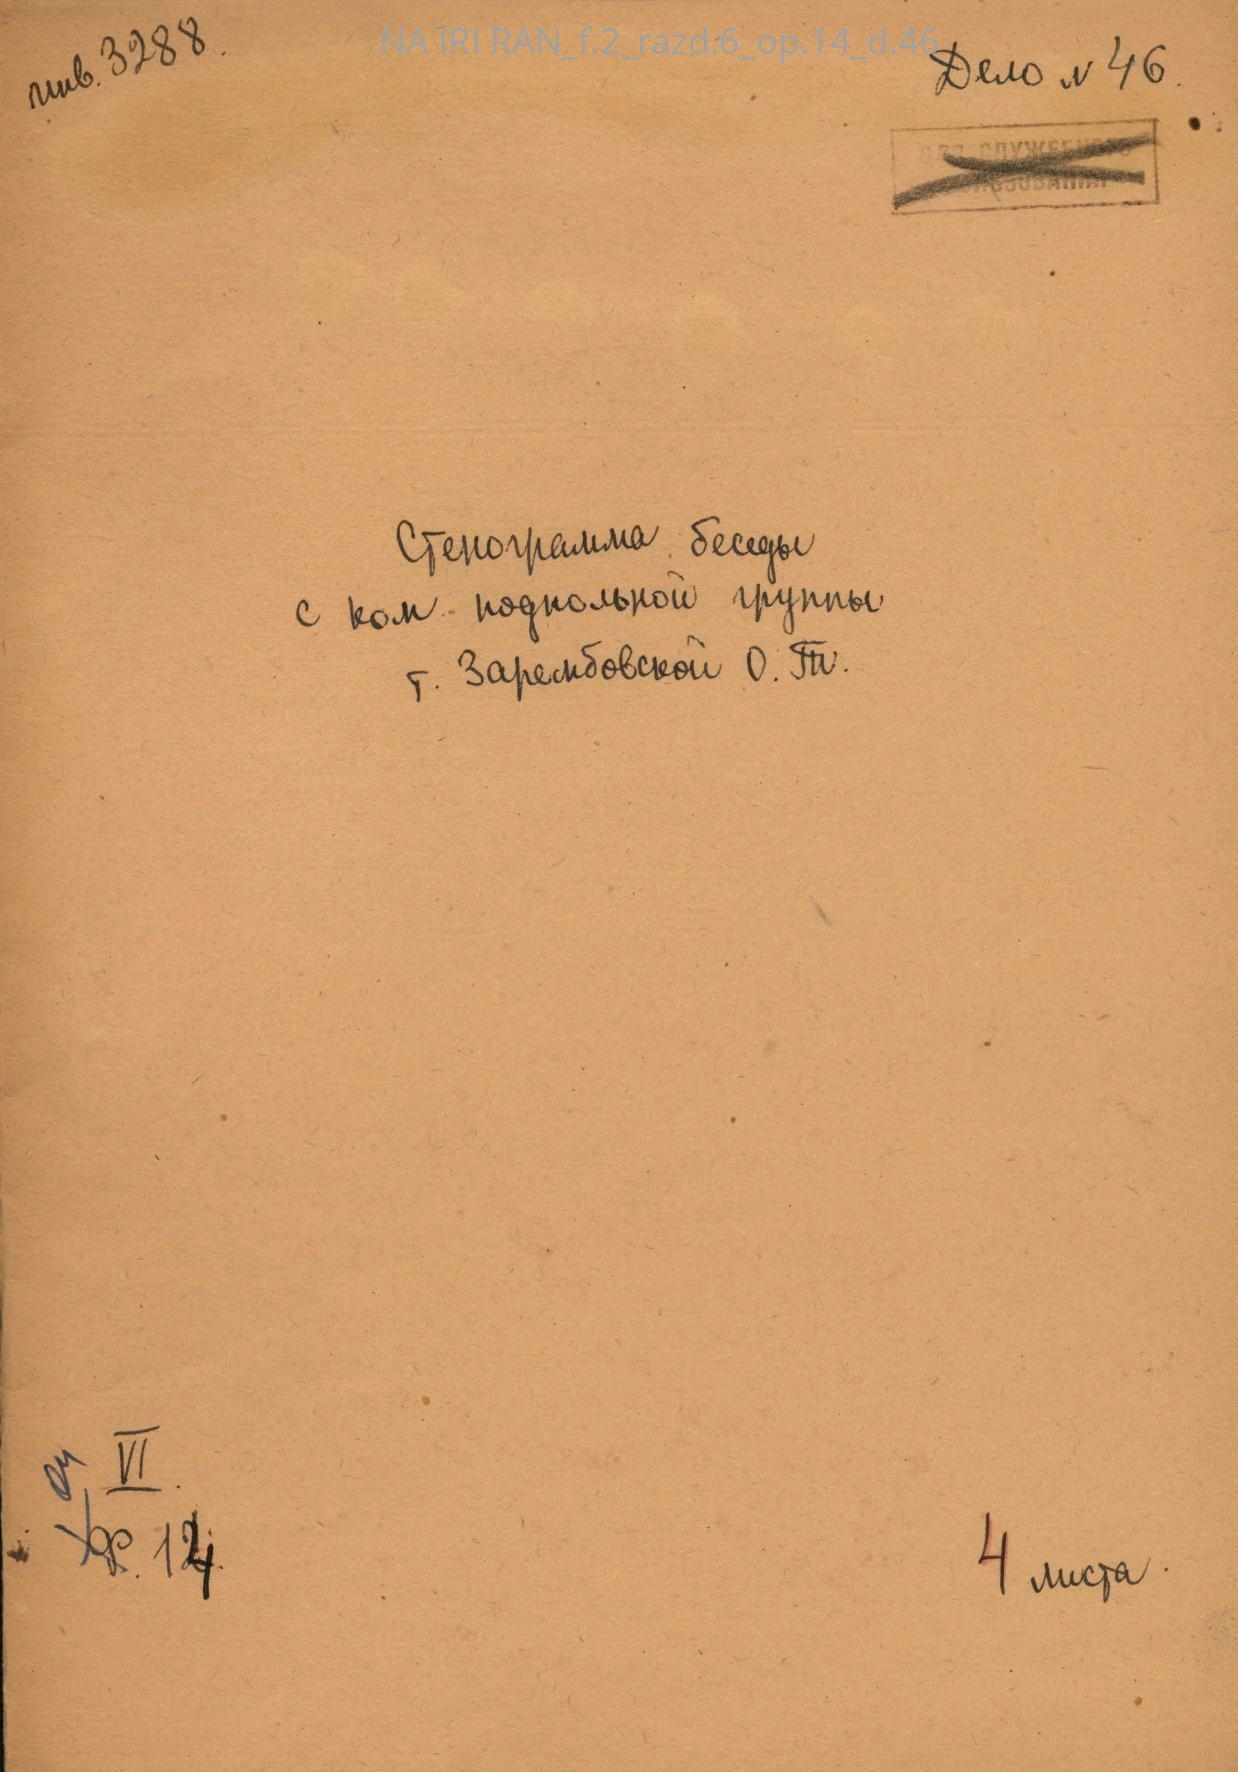 NA IRI RAN_f.2_razd.6_op.14_d.46
инв. 3288.
Дело № 46.
ДЛЯ СЛУЖЕБНОГО
ПОЛЬЗОВАНИЯ
Стенограмма беседы
с ком. подпольной группы
т. Зарембовской О. Т.
VI.
оп
Ф. 14.
4 листа.